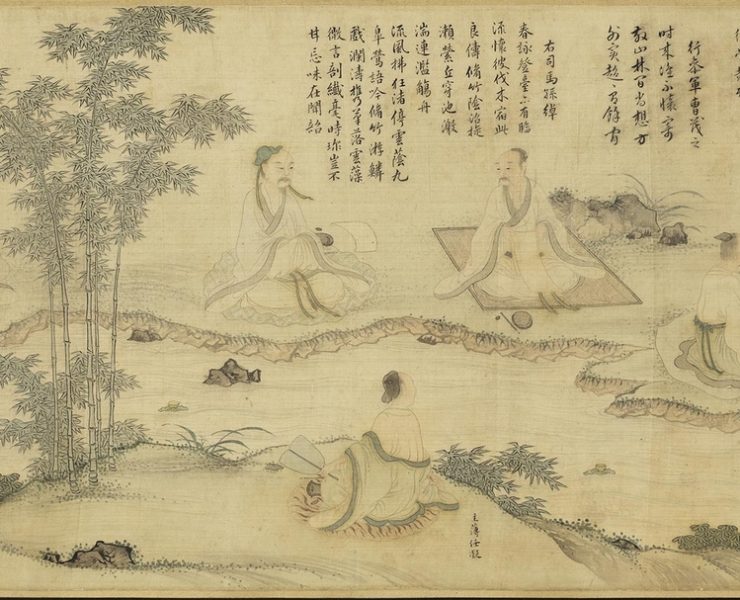 行參軍曹茂之
時来誰不懷寄
散山林間尚想方
外賓超〻有餘閒
右司馬孫綽
春詠登臺亦有臨
流懷彼伐木宿此
良儔脩竹蔭沼旋
瀨縈丘穿池激
湍連濫觴舟
流風拂枉渚停雲蔭九
皋鶯語吟脩竹游鱗
戲瀾濤携筆落雲藻
微言剖纖毫時珍豈不
甘忘味在聞韶
主簿任凝